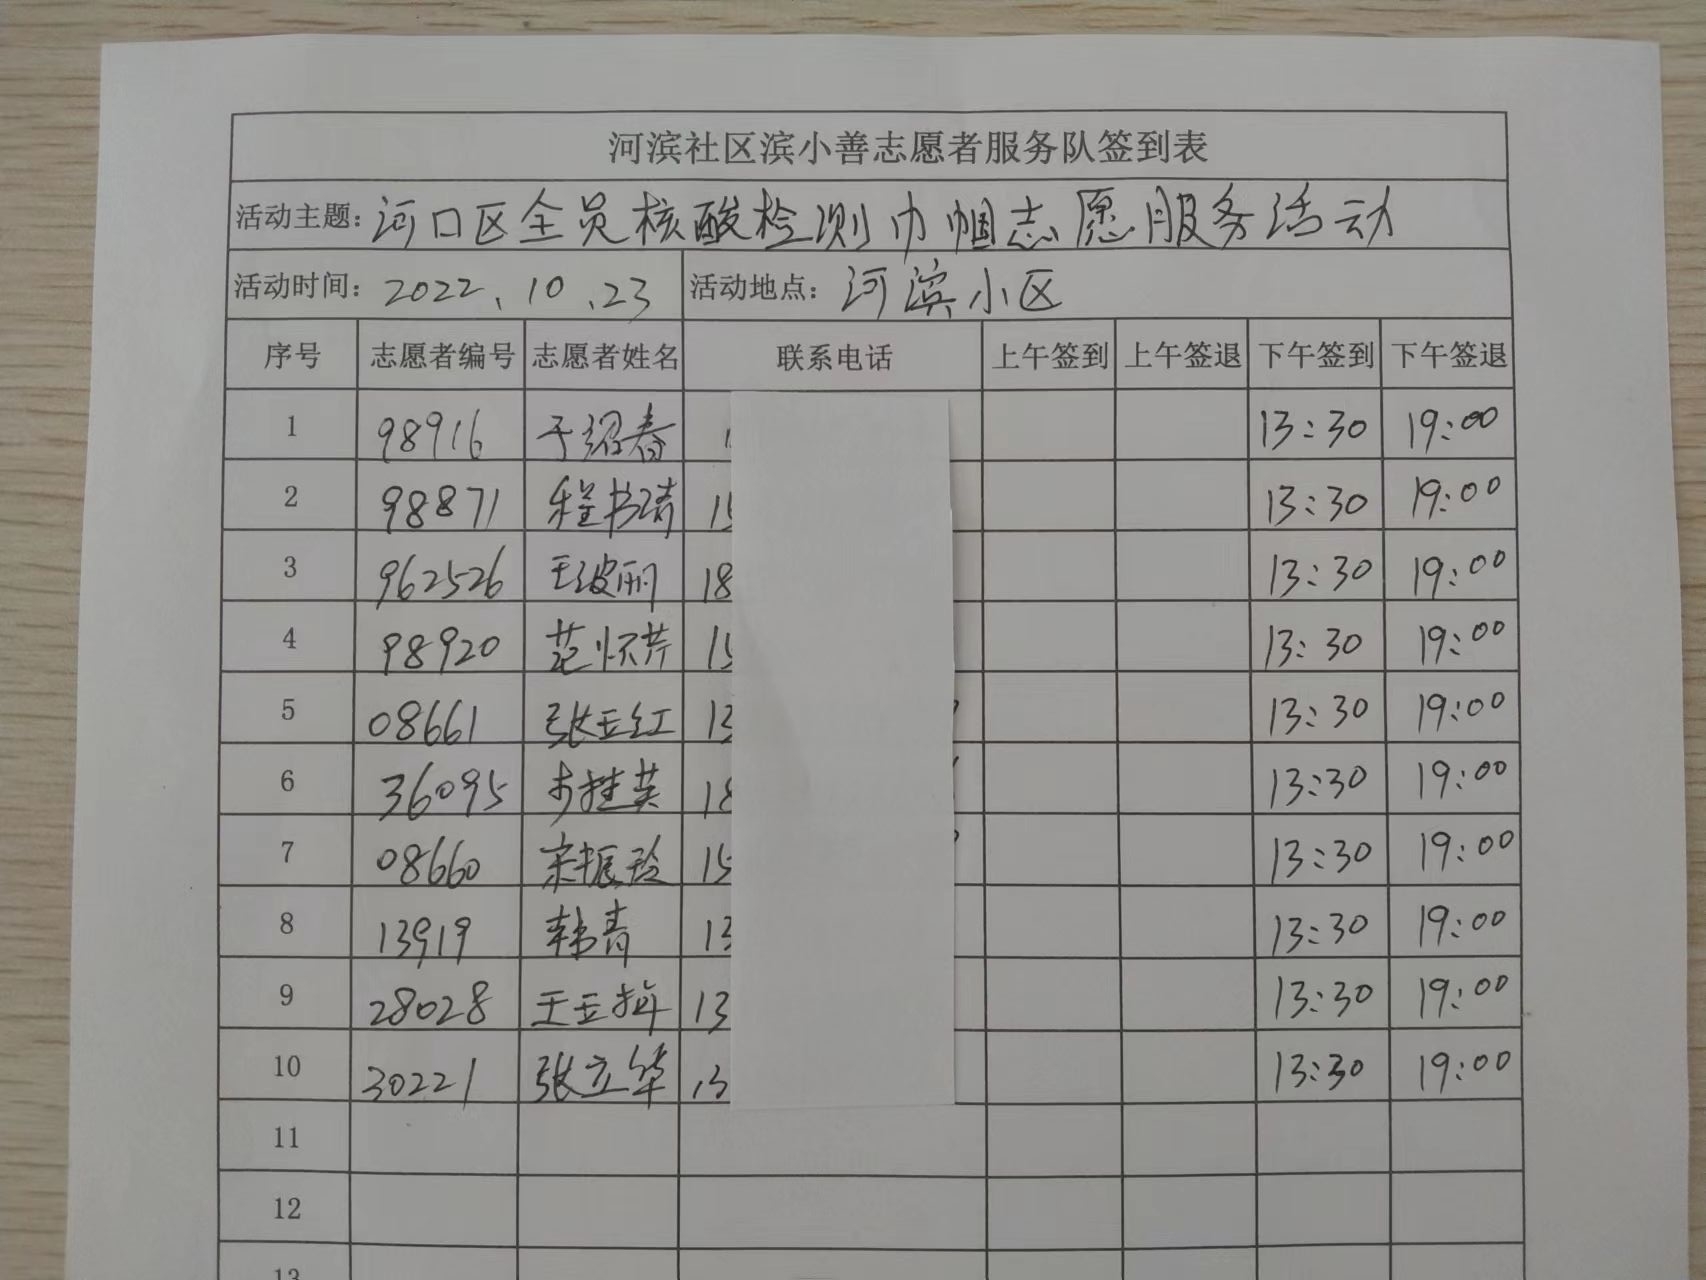 河滨社区滨小善志愿者服务队签到表
活动主题: 河口区全员核酸检测巾帼志愿服务活动
活动时间: 2022、10、23 活动地点: 河滨小区
序号 志愿者编号 志愿者姓名 联系电话 上午签到 上午签退 下午签到 下午签退
1 98916 于绍春 13:30 19:00
2 98871 程书琦 15 13:30 19:00
3 962526 王波丽 18 13:30 19:00
4 98920 范怀芹 15 13:30 19:00
5 08661 张玉红 13 13:30 19:00
6 36095 步桂英 18 13:30 19:00
7 08660 宋振玲 15 13:30 19:00
8 13919 韩青 13 13:30 19:00
9 28028 王玉梅 13 13:30 19:00
10 30221 张立华 13 13:30 19:00
11
12
13